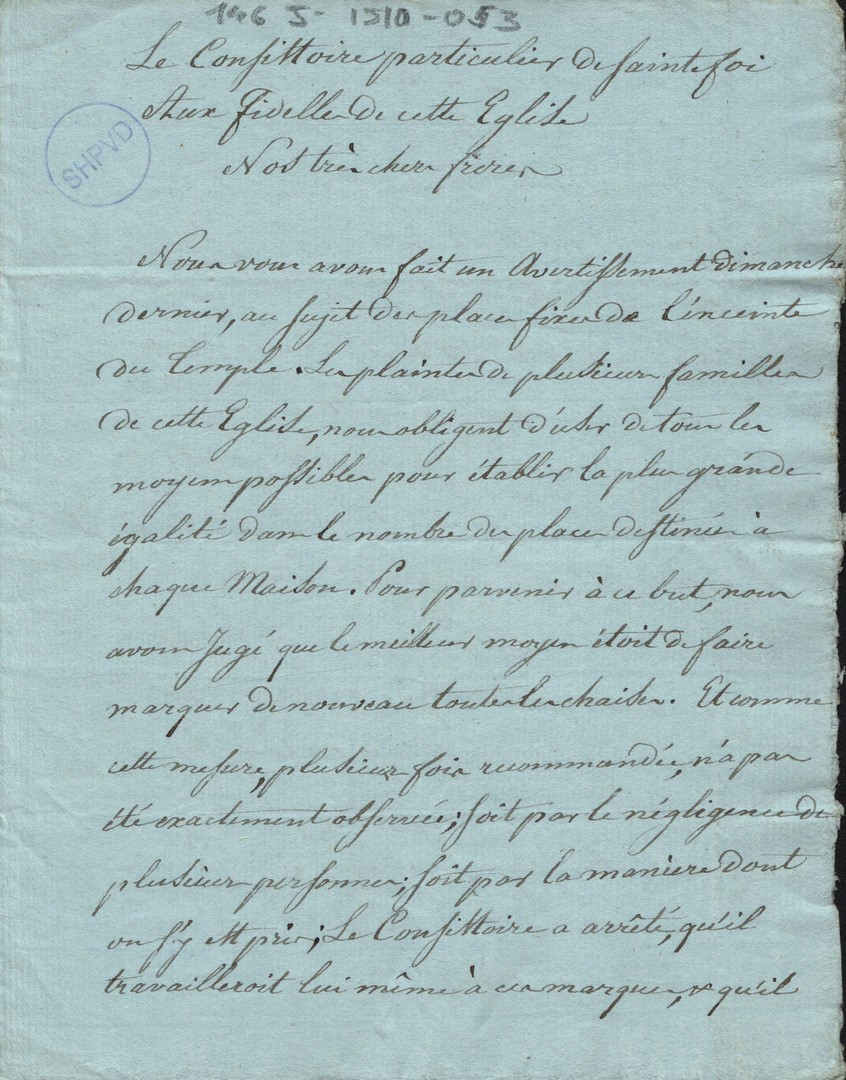 146 J - 1510 - 053
Le Consistoire particulier de sainte foi
Aux Fidelles de cette Eglise
Nos très chers frères
SHPVD
Nous vous avons fait un Avertissement dimanche
dernier, au sujet des places fixes de l'enceinte
du Temple. Les plaintes de plusieurs familles
de cette Eglise, nous obligent d'user de tous les
moyens possibles pour établir la plus grande
égalité dans le nombre des places destinées à
chaque Maison. Pour parvenir à ce but, nous
avons Jugé que le meilleur moyen étoit de faire
marquer de nouveau toutes les chaises. Et comme
cette mesure, plusieurs fois recommandée, n'a pas
été exactement observée; soit par le négligence de
plusieurs personnes; soit par la maniere dont
on s'y est pris; Le Consistoire a arrêté, qu'il
travailleroit lui même à ces marques, & qu'il